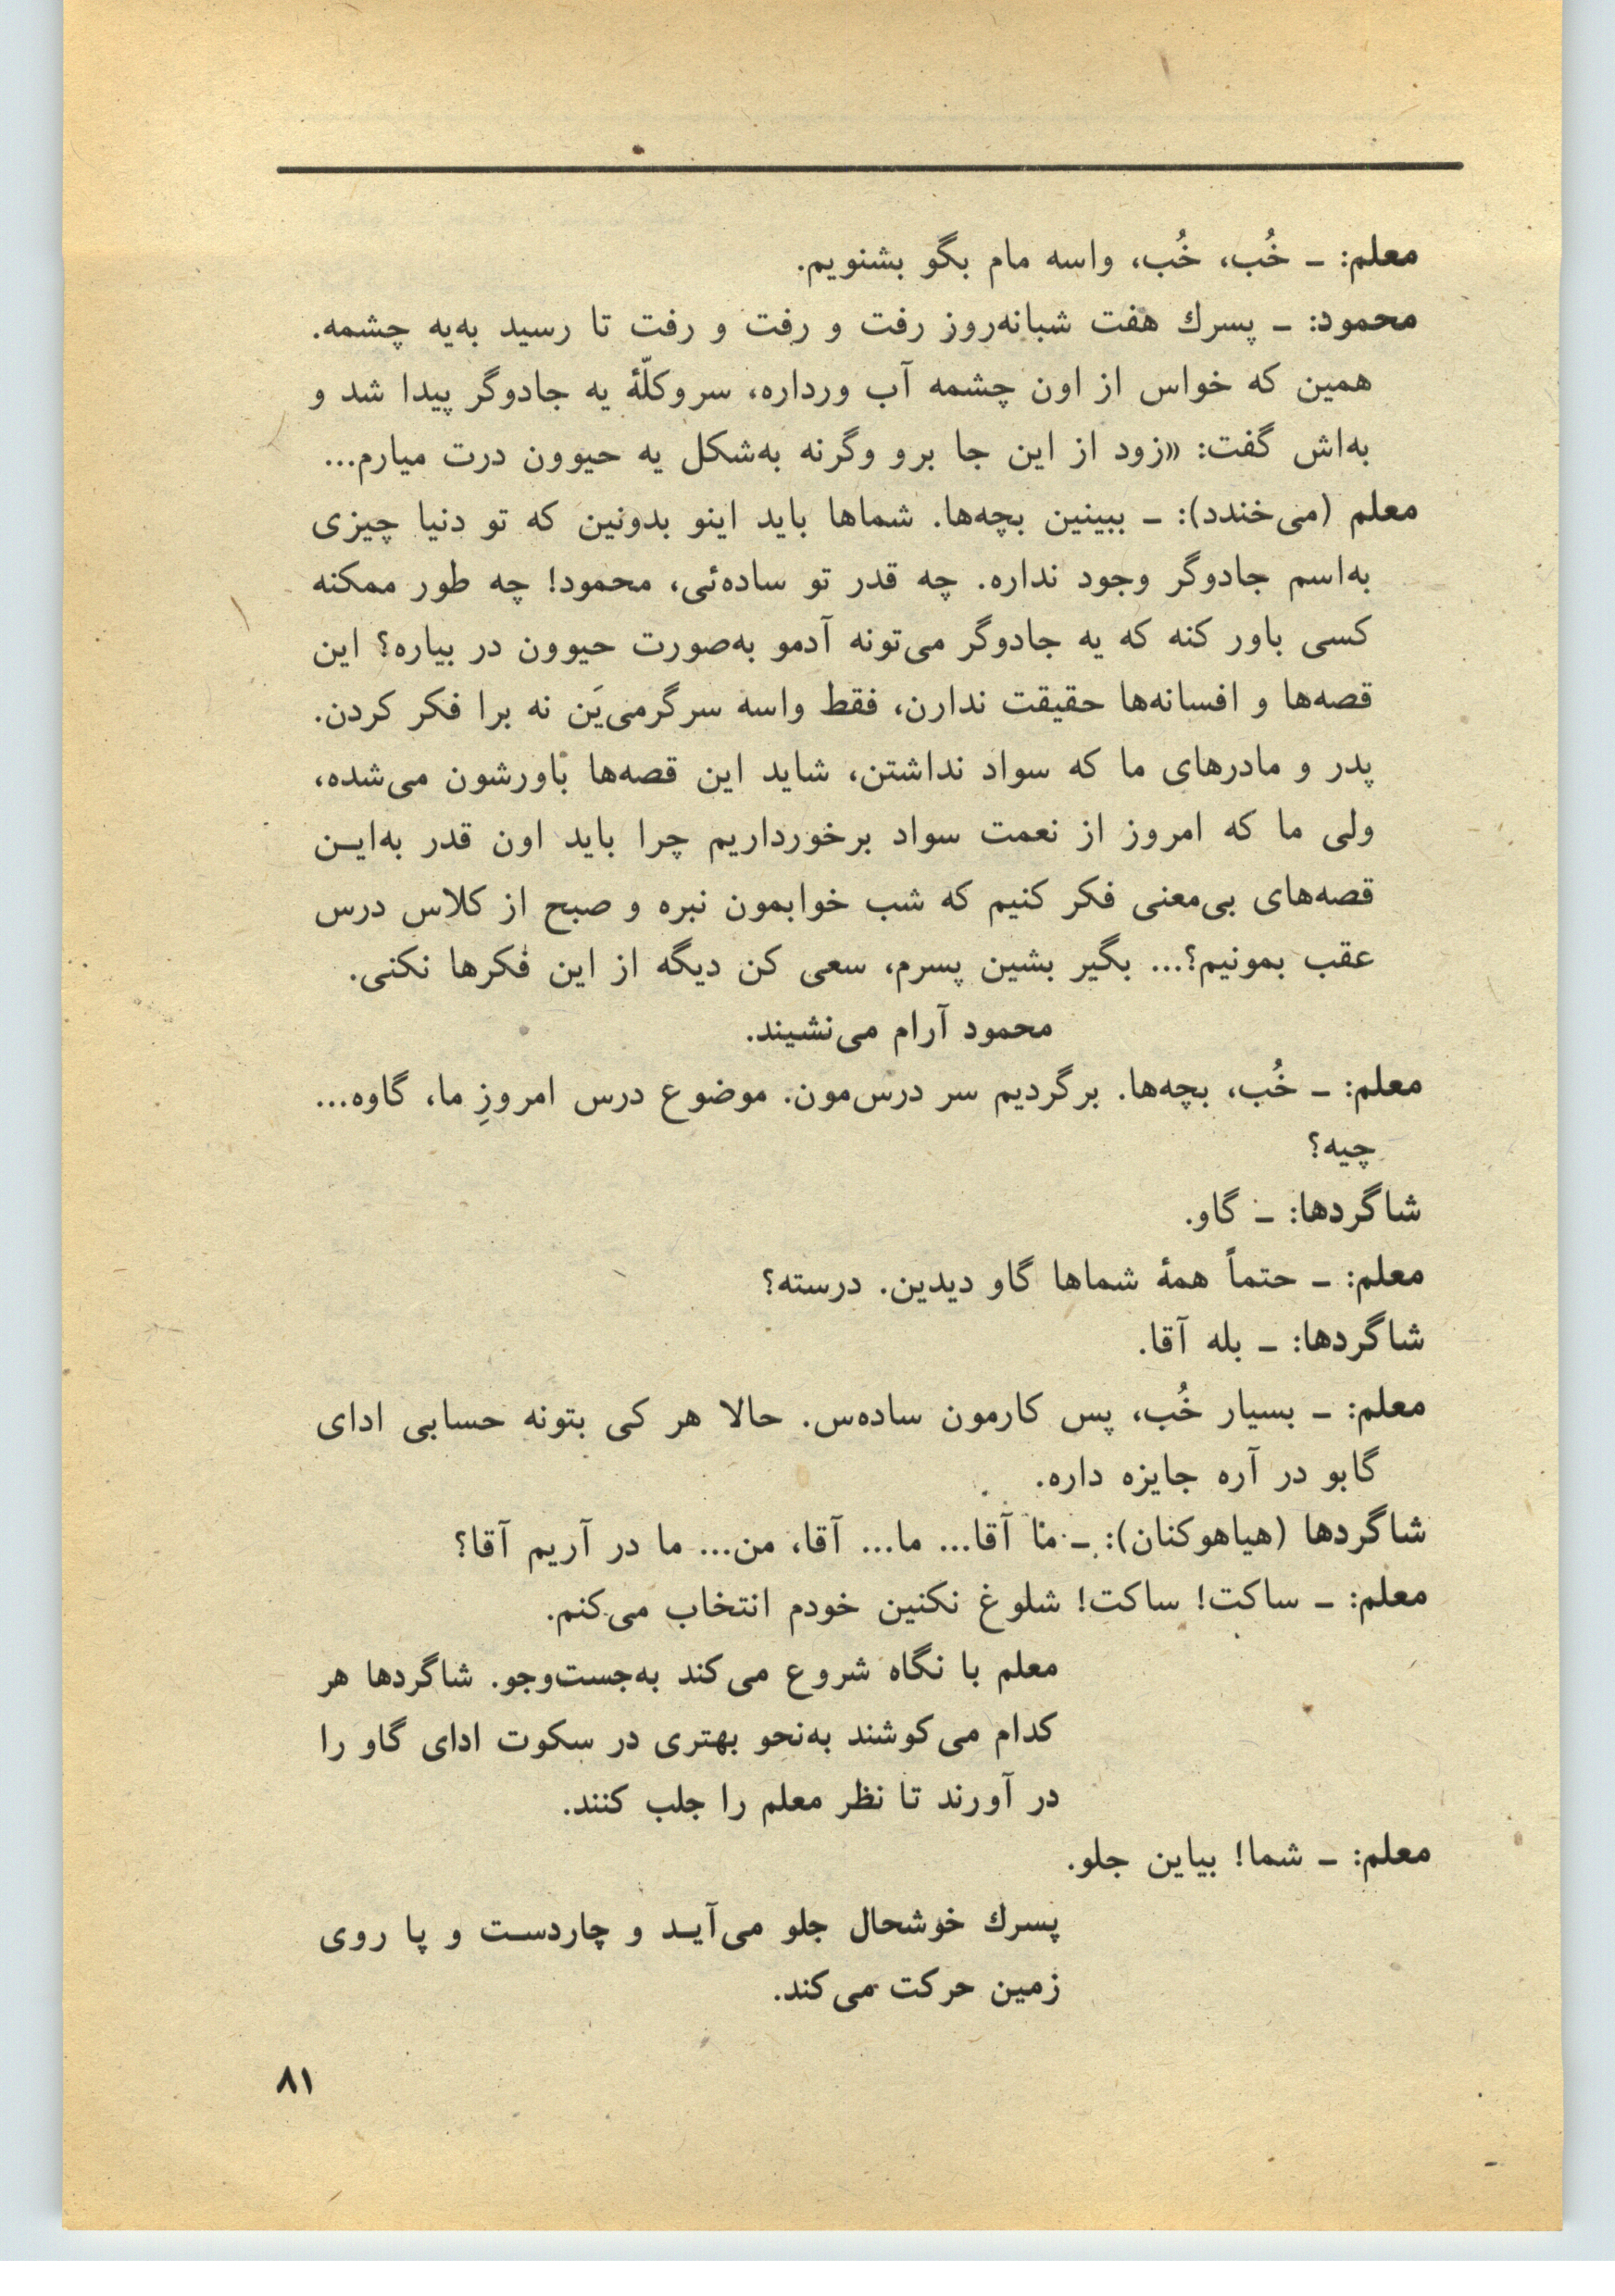 معلم: ـ خُب، خُب، واسه مام بگو بشنویم.
محمود: ـ پسرك هفت شبانه‌روز رفت و رفت و رفت تا رسید به‌یه چشمه.
همین که خواس از اون چشمه آب ورداره، سروکلّهٔ یه جادوگر پیدا شد و
به‌اش گفت: «زود از این جا برو وگرنه به‌شکل یه حیوون درت میارم...
معلم (می‌خندد): ـ ببینین بچه‌ها. شماها باید اینو بدونین که تو دنیا چیزی
به‌اسم جادوگر وجود نداره. چه قدر تو ساده‌ئی، محمود! چه طور ممکنه
کسی باور کنه که یه جادوگر می‌تونه آدمو به‌صورت حیوون در بیاره؟ این
قصه‌ها و افسانه‌ها حقیقت ندارن، فقط واسه سرگرمی‌یَن نه برا فکر کردن.
پدر و مادرهای ما که سواد نداشتن، شاید این قصه‌ها باورشون می‌شده،
ولی ما که امروز از نعمت سواد برخورداریم چرا باید اون قدر به‌ایـن
قصه‌های بی‌معنی فکر کنیم که شب خوابمون نبره و صبح از کلاس درس
عقب بمونیم؟... بگیر بشین پسرم، سعی کن دیگه از این فکرها نکنی.
محمود آرام می‌نشیند.
معلم: ـ خُب، بچه‌ها. برگردیم سر درس‌مون. موضوع درس امروزِ ما، گاوه...
چیه؟
شاگردها: ـ گاو.
معلم: ـ حتماً همهٔ شماها گاو دیدین. درسته؟
شاگردها: ـ بله آقا.
معلم: ـ بسیار خُب، پس کارمون ساده‌س. حالا هر کی بتونه حسابی ادای
گابو در آره جایزه داره.
شاگردها (هیاهوکنان): ـ ما آقا... ما... آقا، من... ما در آریم آقا؟
معلم: ـ ساکت! ساکت! شلوغ نکنین خودم انتخاب می‌کنم.
معلم با نگاه شروع می‌کند به‌جست‌وجو. شاگردها هر
کدام می‌کوشند به‌نحو بهتری در سکوت ادای گاو را
در آورند تا نظر معلم را جلب کنند.
معلم: ـ شما! بیاین جلو.
پسرك خوشحال جلو می‌آیـد و چاردسـت و پا روی
زمین حرکت می‌کند.
۸۱